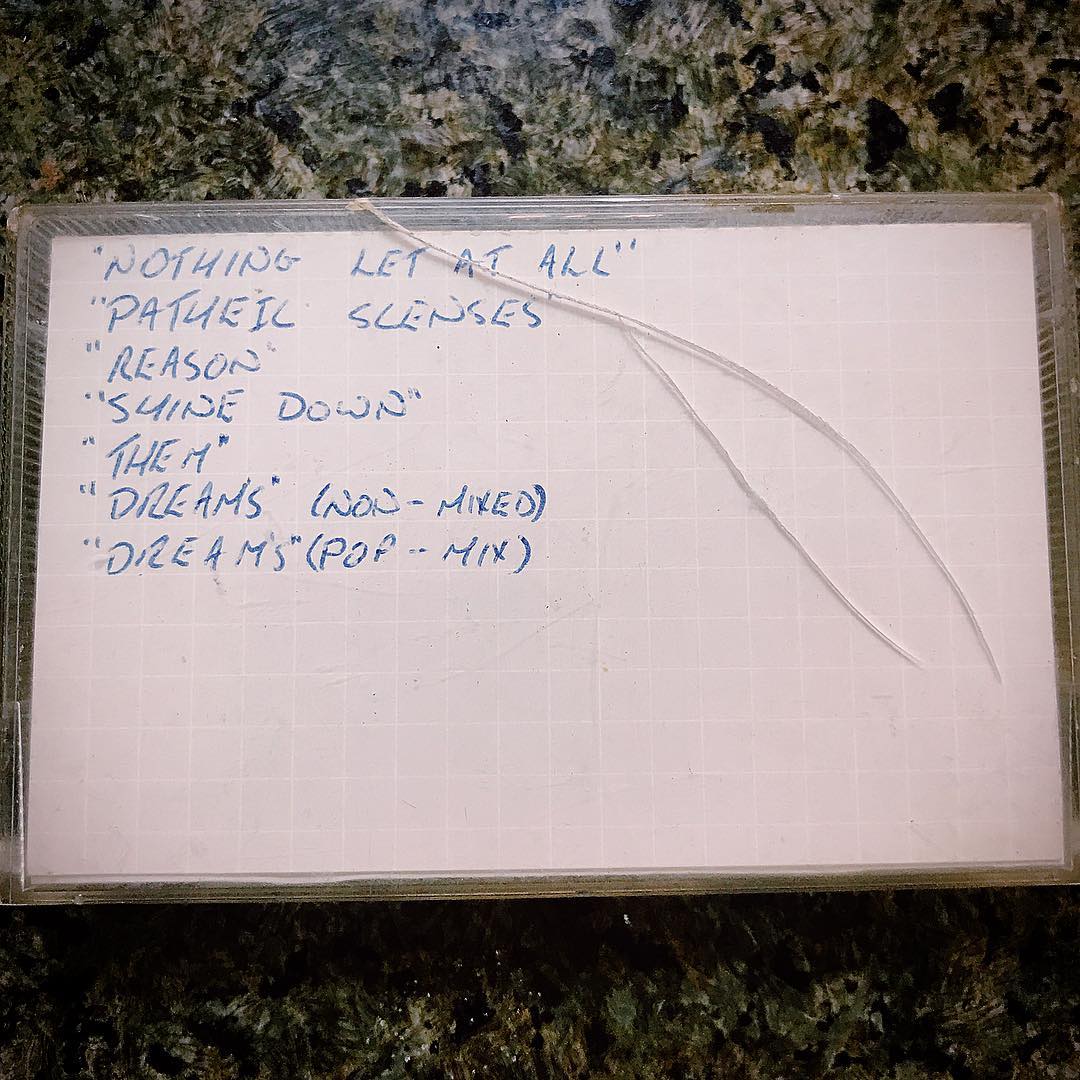 "NOTHING LET AT ALL"
"PATHEIC SCENSES"
"REASON"
"SHINE DOWN"
"THEM"
"DREAMS" (NON-MIXED)
"DREAMS" (POP-MIX)